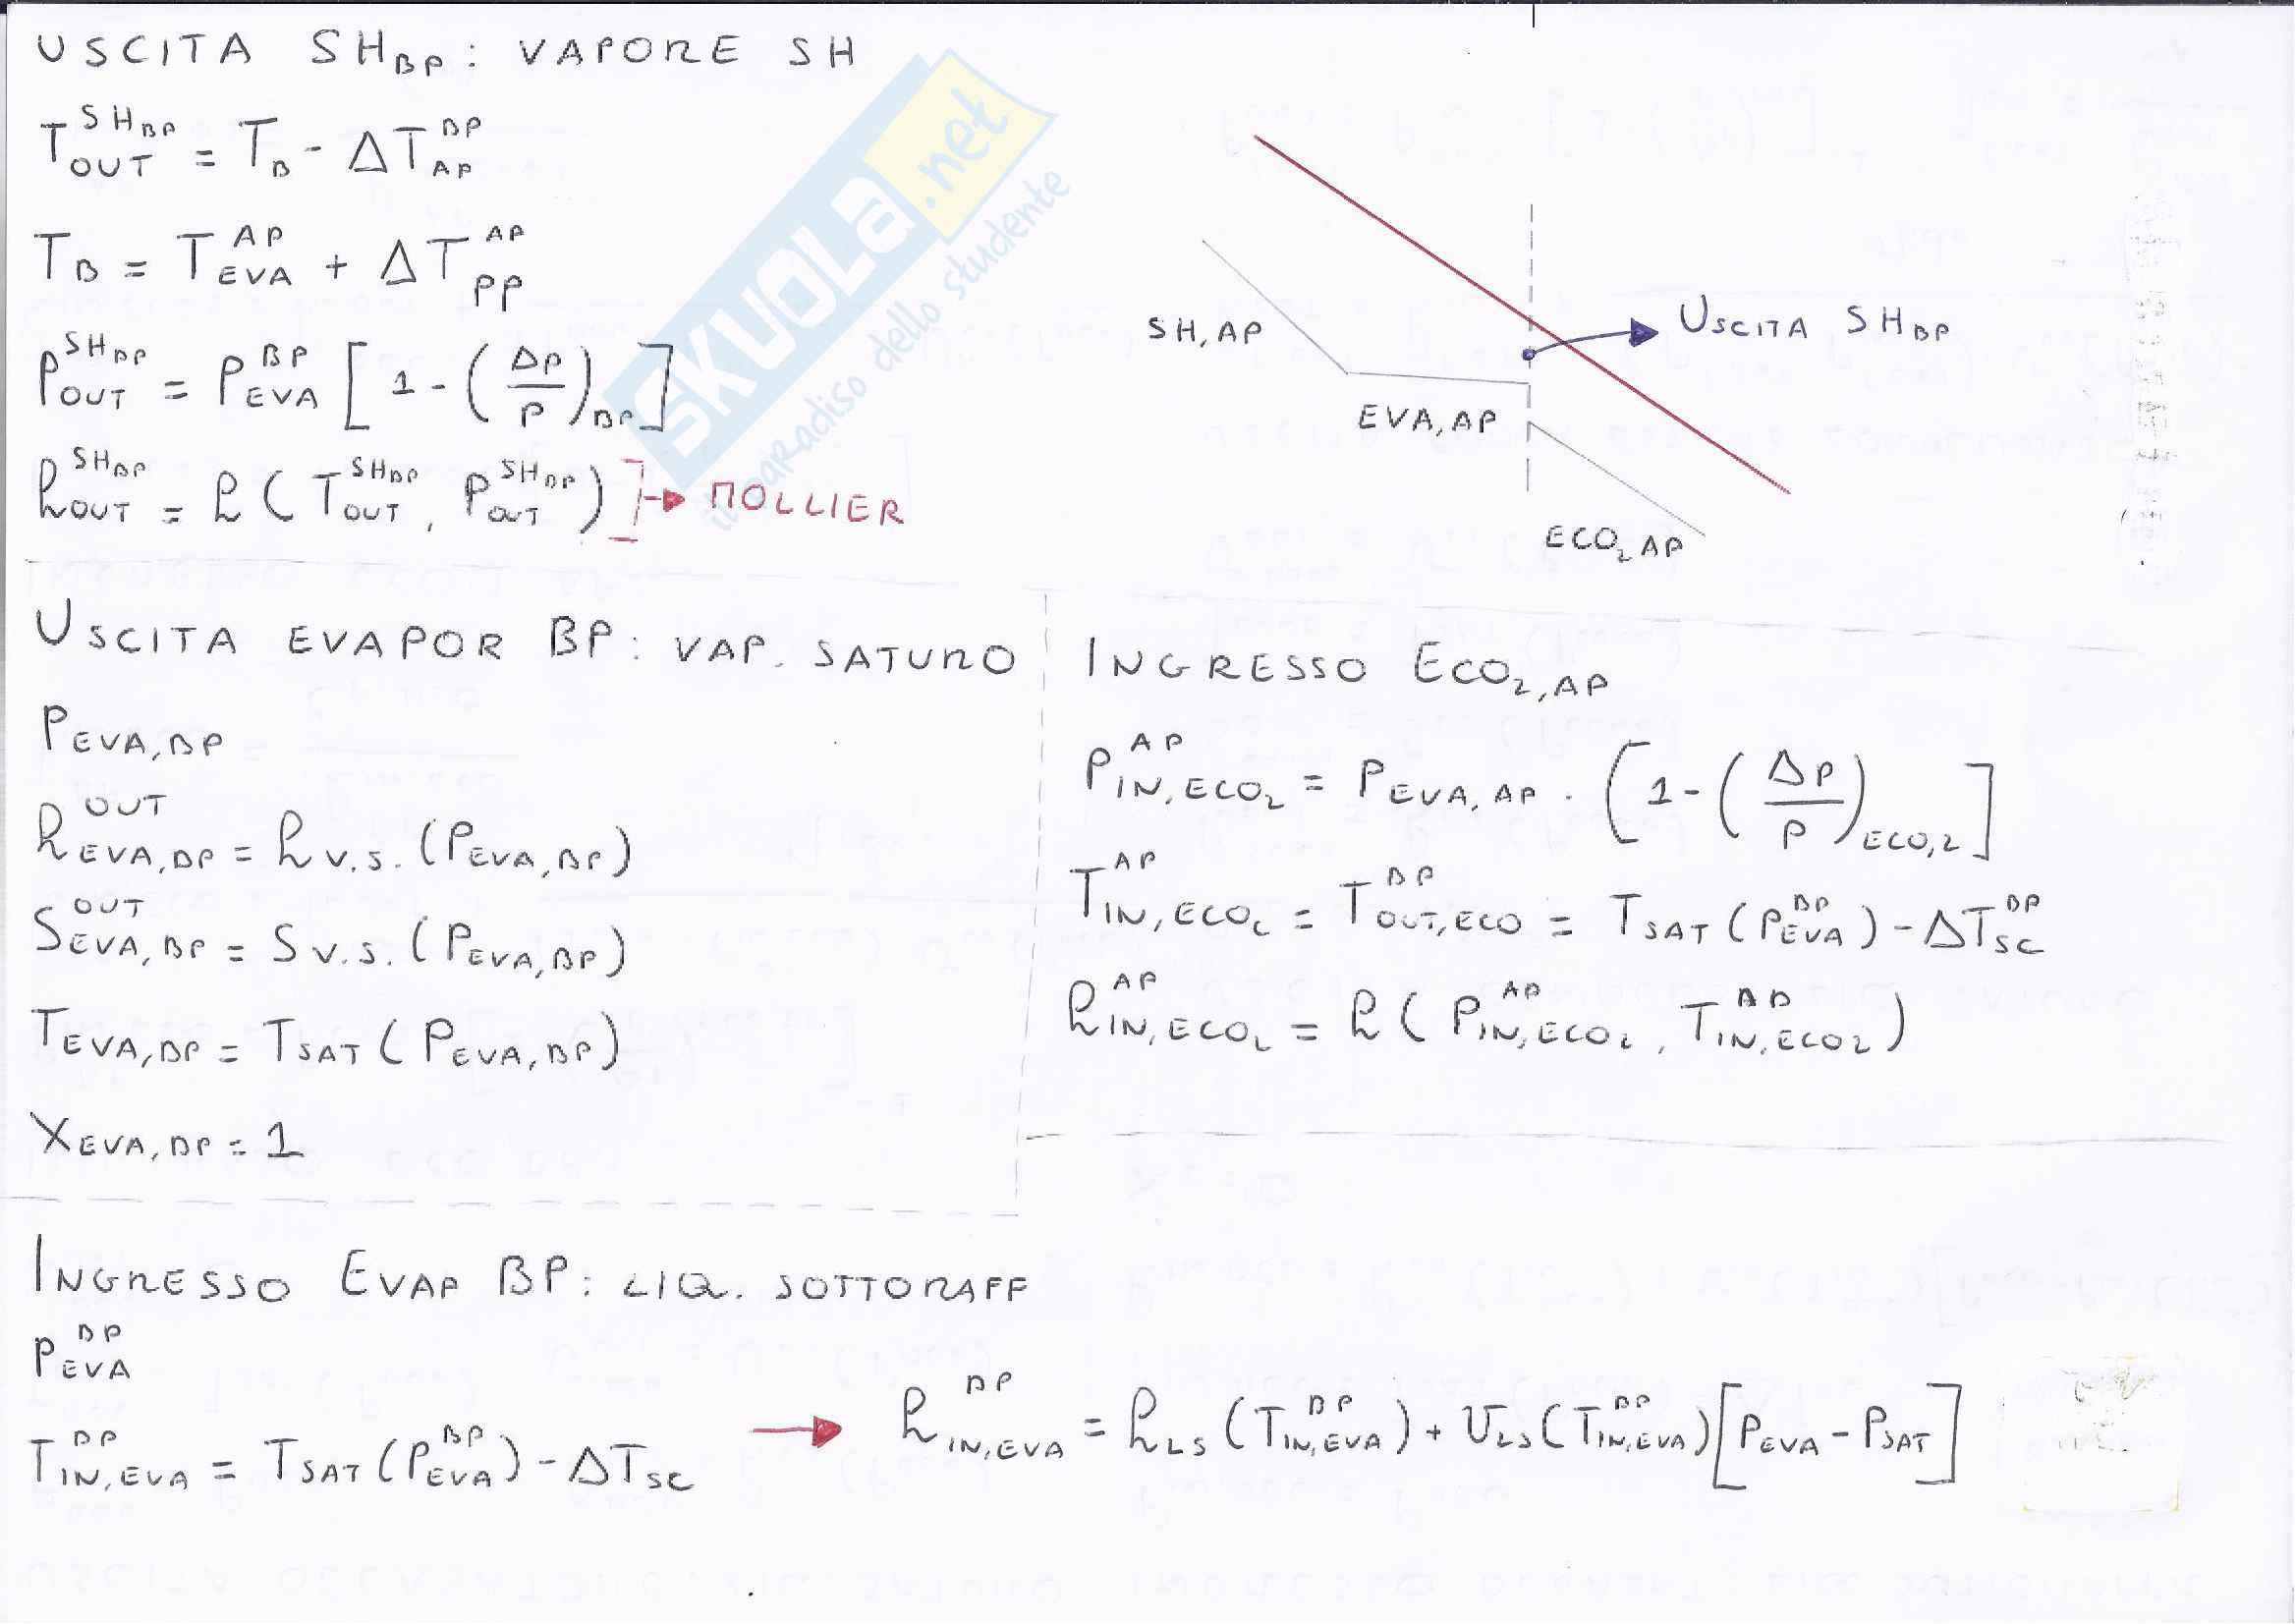 USCITA SH_BP : VAPORE SH
T_OUT^SH_BP = T_B - ΔT_AP^BP
T_B = T_EVA^AP + ΔT_PP^AP
P_OUT^SH_BP = P_EVA^BP [ 1 - (ΔP/P)_BP ]
h_OUT^SH_BP = h ( T_OUT^SH_BP , P_OUT^SH_BP ) ] → MOLLIER
SKUOLA.net
il paradiso dello studente
SH, AP
EVA, AP
USCITA SH_BP
ECO_2 AP
USCITA EVAPOR BP : VAP. SATURO
P_EVA,BP
h_EVA,BP^OUT = h_V.S. (P_EVA,BP)
S_EVA,BP^OUT = S_V.S. (P_EVA,BP)
T_EVA,BP = T_SAT (P_EVA,BP)
X_EVA,BP = 1
INGRESSO ECO_2,AP
P_IN,ECO_2^AP = P_EVA,AP · [ 1 - (ΔP/P)_ECO,2 ]
T_IN,ECO_2^AP = T_OUT,ECO^BP = T_SAT (P_EVA^BP) - ΔT_SC^BP
h_IN,ECO_2^AP = h ( P_IN,ECO_2^AP , T_IN,ECO_2^AP )
INGRESSO EVAP BP : LIQ. SOTTORAFF
P_EVA^BP
T_IN,EVA^BP = T_SAT (P_EVA^BP) - ΔT_SC → h_IN,EVA^BP = h_LS (T_IN,EVA^BP) + v_LS (T_IN,EVA^BP) [P_EVA - P_SAT]